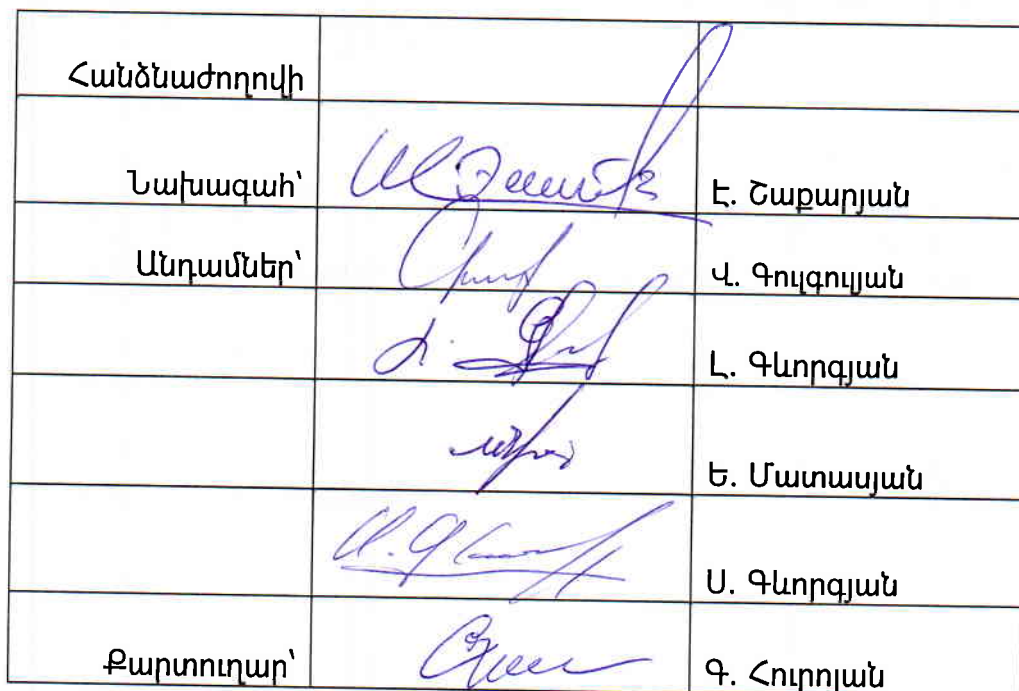 Հանձնաժողովի
Նախագահ՝ Է. Շաքարյան
Անդամներ՝ Վ. Գուլգուլյան
Լ. Գևորգյան
Ե. Մատասյան
Ս. Գևորգյան
Քարտուղար՝ Գ. Հուրոյան